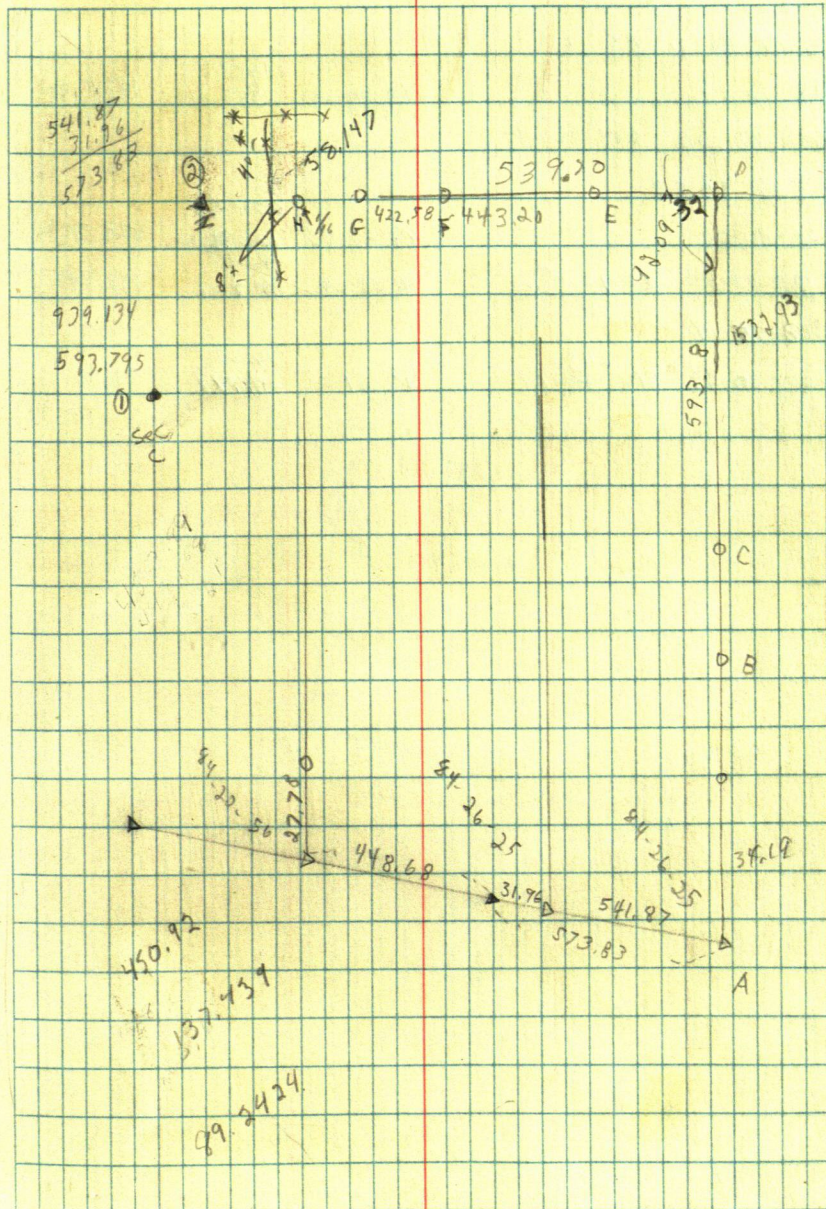 541.87
31.96
573.83
②
N
4.0
58.147
8±
H
1/16
G
422.58
F
443.20
539.20
E
D
92-09-32
939.134
593.795
①
Sec
C
593.8
1532.93
C
B
84-20-56
27.78
448.68
84-26-25
31.96
541.87
573.83
84-26-25
34.19
A
450.92
137.439
89.2424